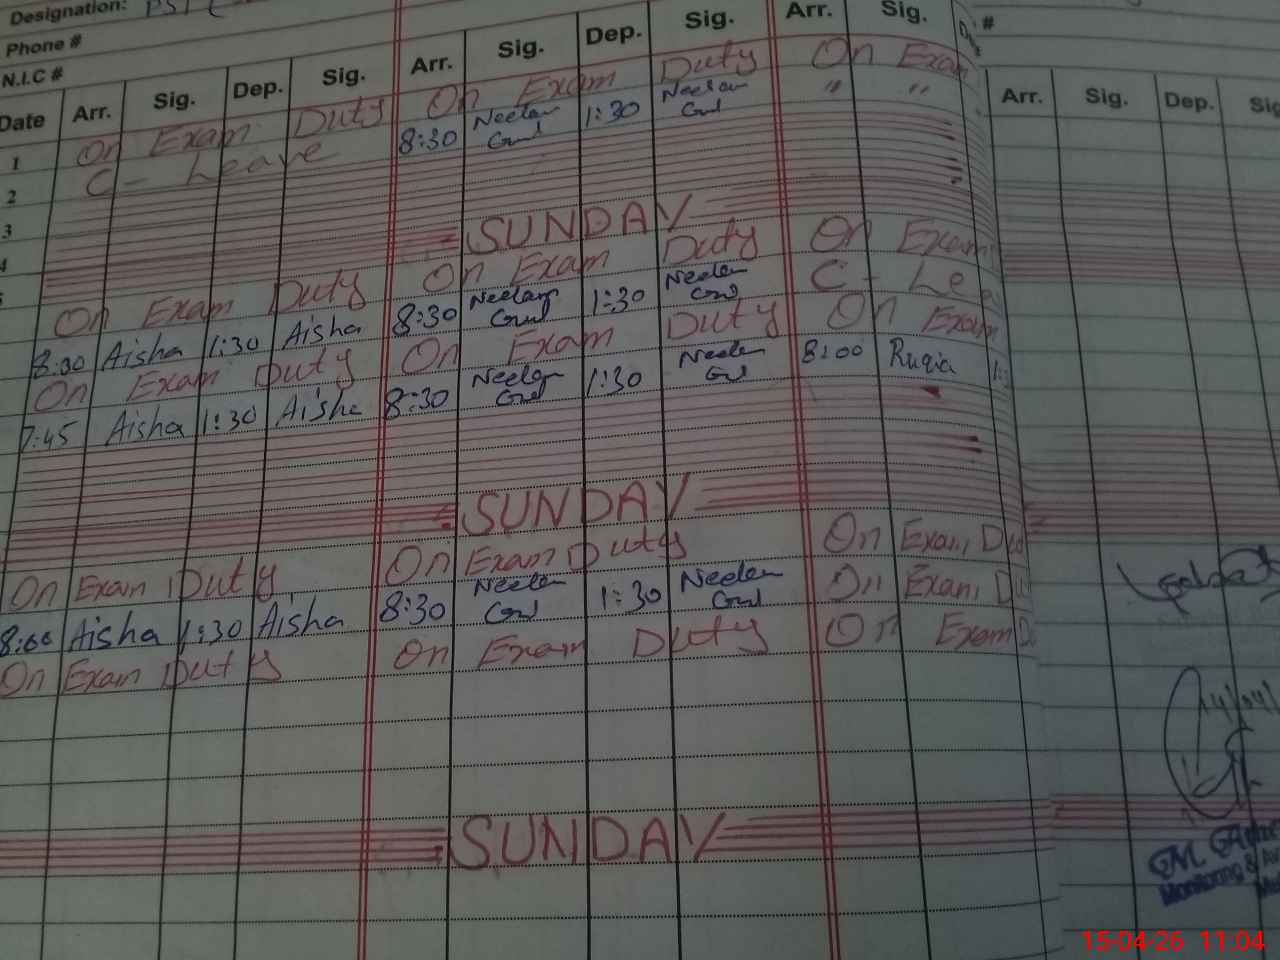 Designation: PST
Phone #
N.I.C #
Date Arr. Sig. Dep. Sig. Arr. Sig. Dep. Sig. Arr. Sig. #
Arr. Sig. Dep.
1 On Exam Duty On Exam Duty On Exam
2 C - Leave 8:30 Neelam 1:30 Neelam " "
3
SUNDAY
4 On Exam Duty On Exam Duty On Exam
8:30 Aisha 1:30 Aisha 8:30 Neelam 1:30 Neelam C - Le
On Exam Duty On Exam Duty On Exam
7:45 Aisha 1:30 Aisha 8:30 Neelam 1:30 Neelam 8:00 Ruqia
SUNDAY
On Exam Duty On Exam Duty On Exam
8:00 Aisha 1:30 Aisha 8:30 Neelam 1:30 Neelam On Exam
On Exam Duty On Exam Duty On Exam
SUNDAY
M.
Monitoring &
15-04-26 11:04